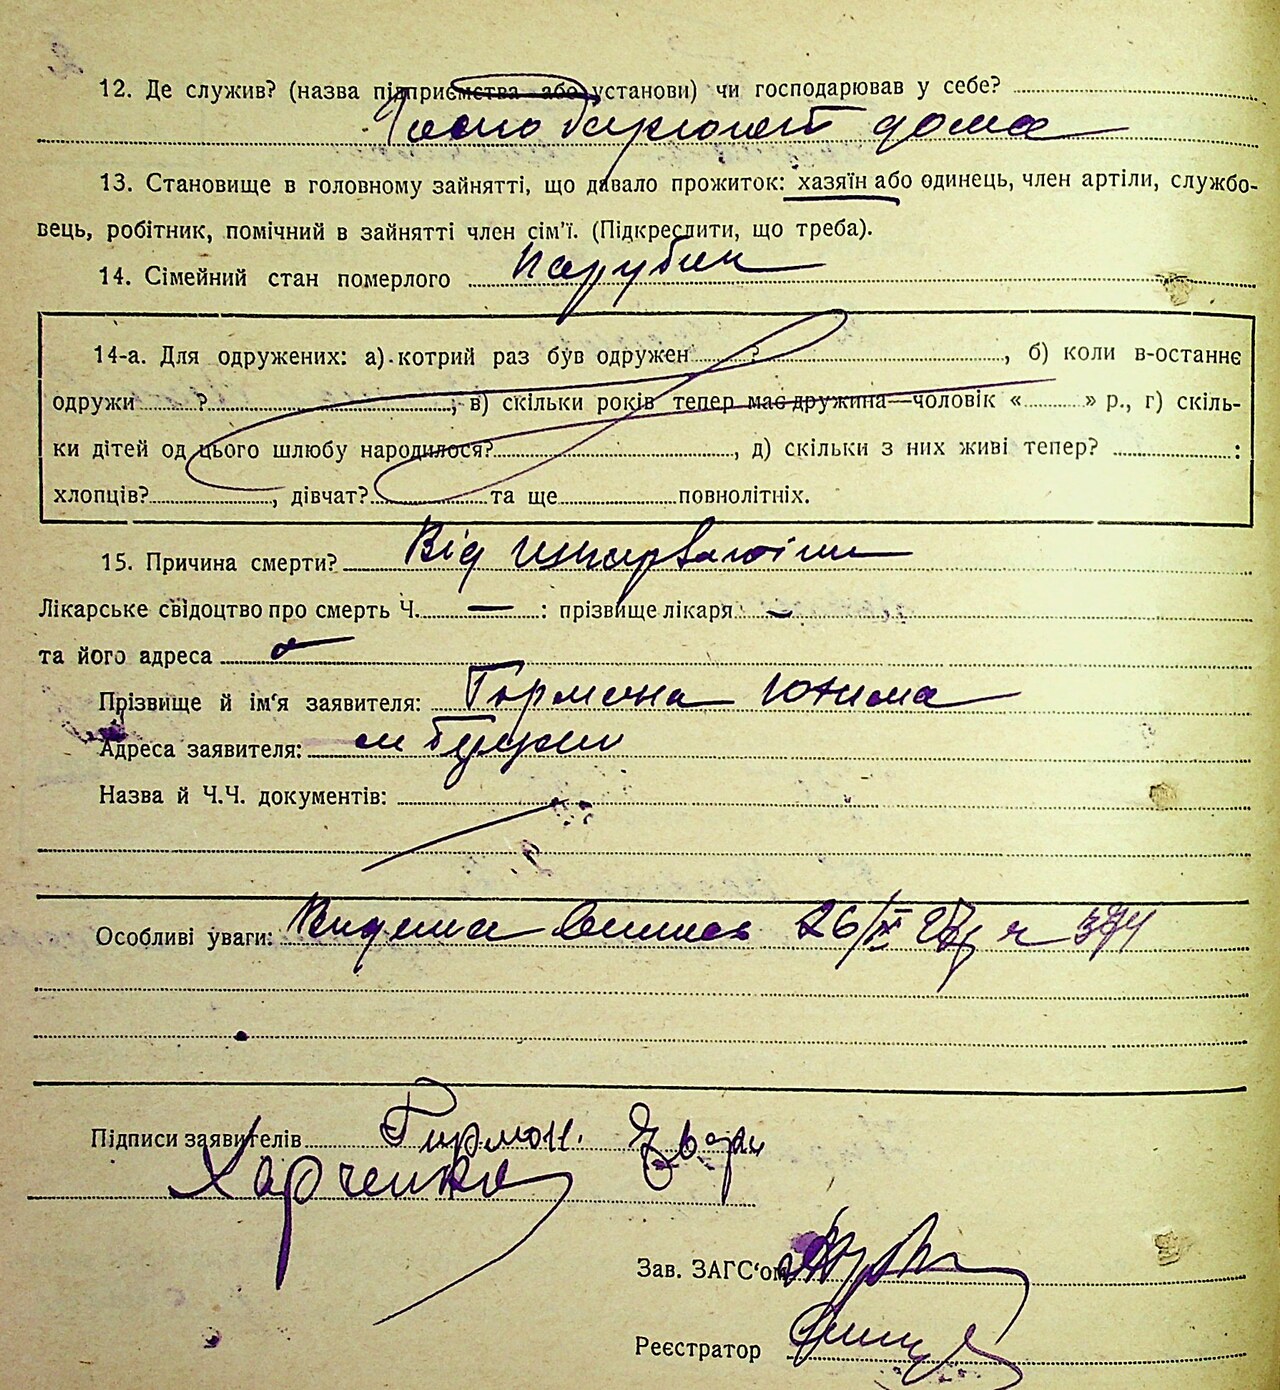 12. Де служив? (назва підприємства або установи) чи господарював у себе?
дома
13. Становище в головному зайнятті, що давало прожиток: хазяїн або одинець, член артіли, службо-
вець, робітник, помічний в зайнятті член сім'ї. (Підкреслити, що треба).
14. Сімейний стан померлого Парубок
14-а. Для одружених: а) котрий раз був одружен ? , б) коли в-останнє
одружи ? , в) скільки років тепер має дружина—чоловік « » р., г) скіль-
ки дітей од цього шлюбу народилося? , д) скільки з них живі тепер? :
хлопців? , дівчат? та ще повнолітніх.
15. Причина смерти? Від
Лікарське свідоцтво про смерть Ч. — : прізвище лікаря —
та його адреса
Прізвище й ім'я заявителя: Юхима
Адреса заявителя: м Буки
Назва й Ч.Ч. документів:
Особливі уваги: Видана выпись 26/IX 27р
Підписи заявителів
Харченко
Зав. ЗАГС'ом
Реєстратор